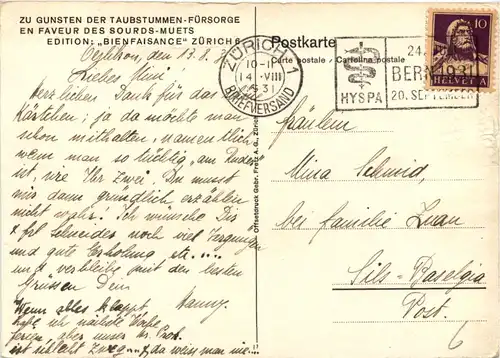 ZU GUNSTEN DER TAUBSTUMMEN-FÜRSORGE
EN FAVEUR DES SOURDS-MUETS
EDITION: „BIENFAISANCE" ZÜRICH 6
Oerlikon, den 13. 8. 31
Liebes Mini!
Herzlichen Dank für das
Kärtchen; ja da möchte man
schon mithalten, namentlich
wenn man so tüchtig „am Ruder
ist, wie Ihr zwei. Du musst
mir dann gründlich erzählen
nicht wahr! Ich wünsche Dir
& Schneider noch viel Vergnügen
und gute Erholung etc....
und verbleibe mit den besten
Grüssen Dein
Hanny.
Wenn alles klappt,
habe ich nächste Woche
Ferien, aber unser
ist da weiss man nie...
Offsetdruck Gebr. Fretz A. G., Zürich
Postkarte
Carte postale Cartolina postale
ZÜRICH 1
10-11
14. VIII
31
BRIEFVERSAND
24. JULI
BERN 1931
HYSPA
20. SEPTEMBER
10
HELVETIA
Fräulein
Mina Schmid,
bei Familie Zuan
Sils-Baselgia
Post.
6